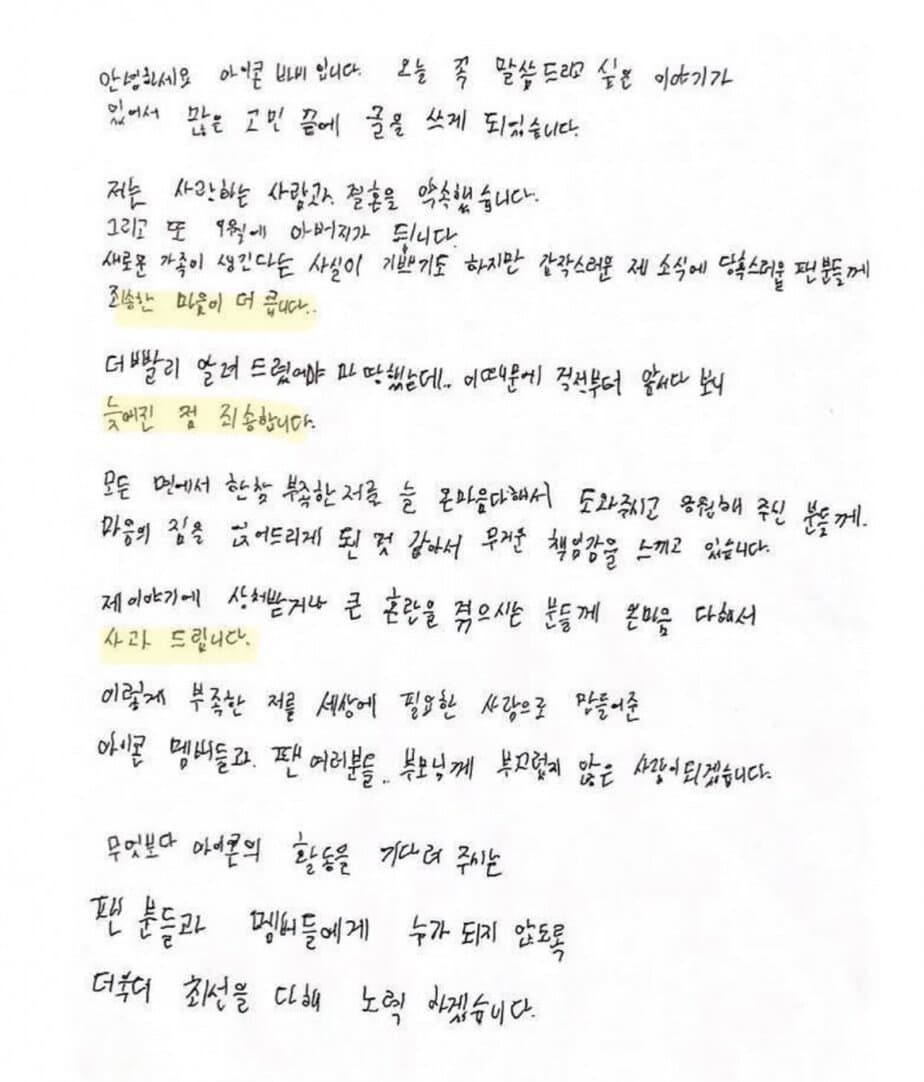 안녕하세요 아이콘 바비입니다. 오늘 꼭 말씀드리고 싶은 이야기가
있어서 많은 고민 끝에 글을 쓰게 되었습니다.
저는 사랑하는 사람과 결혼을 약속했습니다.
그리고 또 9월에 아버지가 됩니다.
새로운 가족이 생긴다는 사실이 기쁘기도 하지만 갑작스러운 제 소식에 당혹스러울 팬분들께
죄송한 마음이 더 큽니다..
더 빨리 알려 드렸어야 마땅했는데.. 이 때문에 걱정부터 앞서다 보니
늦어진 점 죄송합니다.
모든 면에서 한참 부족한 저를 늘 온마음 다해서 도와주시고 응원해 주신 분들께.
마음의 짐을 얹어드리게 된 것 같아서 무거운 책임감을 느끼고 있습니다.
제 이야기에 상처받거나 큰 혼란을 겪으시는 분들께 온마음 다해서
사과 드립니다.
이렇게 부족한 저를 세상에 필요한 사람으로 만들어준
아이콘 멤버들과. 팬 여러분들.. 부모님께 부끄럽지 않은 사람이 되겠습니다.
무엇보다 아이콘의 활동을 기다려 주시는
팬 분들과 멤버들에게 누가 되지 않도록
더욱더 최선을 다해 노력 하겠습니다.